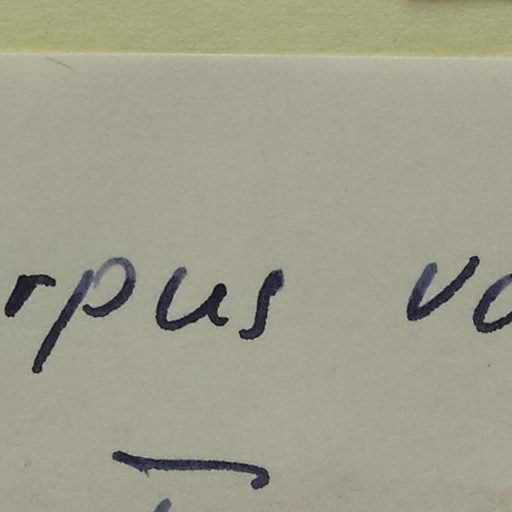 rpus vo